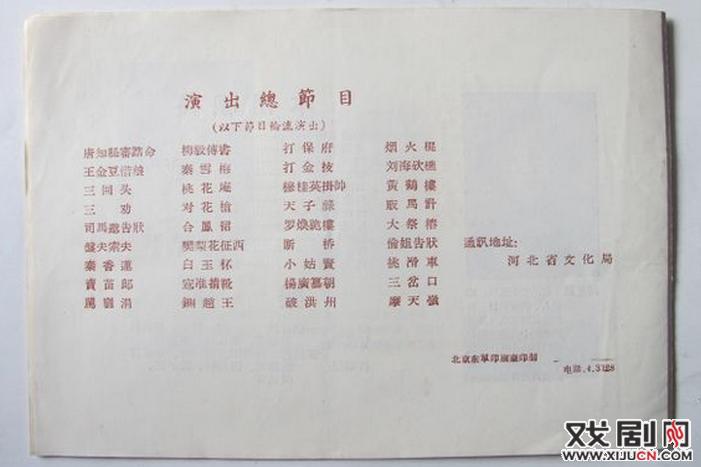 演出總節目
(以下節目輪流演出)
唐知縣審誥命 柳毅傳書 打保府 烟火棍
王金豆借糧 秦雪梅 打金枝 刘海砍樵
三回头 桃花庵 穆桂英掛帥 黃鶴樓
三劝 对花槍 天子祿 取馬計
司馬懋告狀 合鳳裙 罗煥跪樓 大祭樁
盤夫索夫 樊梨花征西 断桥 倫姐告狀
秦香蓮 白玉杯 小姑賢 挑滑車
賣苗郎 寇准揹靴 楊廣篡朝 三岔口
罵劉涓 鍘趙王 破洪州 摩天嶺
通訊地址:
河北省文化局
北京
印刷廠印制
电話.4.3128
戏剧网
WWW.XIJUCN.COM